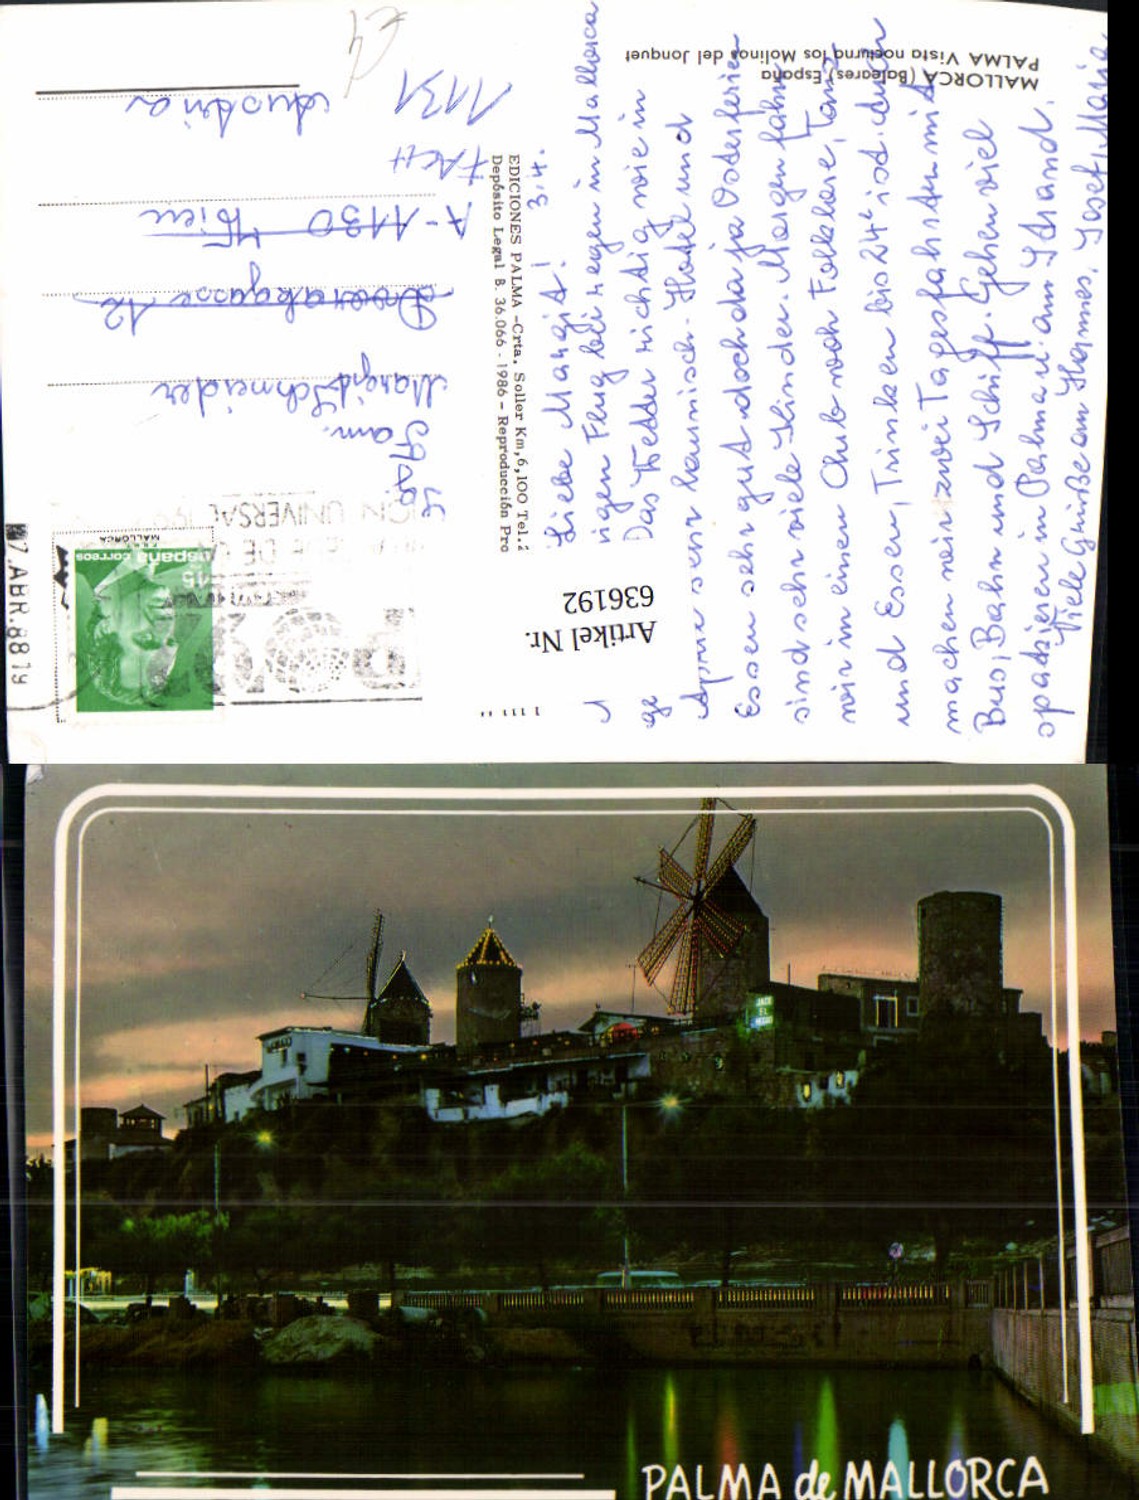 MALLORCA (Baleares) España
PALMA Vista nocturna los Molinos del Jonquet
3.4.
Liebe Margit!
Flug
in Mallorca
Das Wetter richtig wie in
Hotel und
Essen sehr gut doch da ja Osterferien
sind sehr viele Kinder. Morgen fahren
wir in einen Club wo Folklore, Tanz
und Essen, Trinken bis 24h ist. Auch
machen wir zwei Tagesfahrten mit
Bus, Bahn und Schiff. Gehen viel
spazieren in Palma u. am Strand.
Viele Grüße an Hannes, Josef, Maria
EDICIONES PALMA -Crta. Soller Km, 6,100 Tel.
Depósito Legal B. 36.066 - 1986 - Reproducción Pro
Artikel Nr.
636192
Fam.
Margit Schneider
Dvorakgasse 12
A-1130 Wien
FACH
1131
Austria
españa correos
15
MALLORCA
7.ABR.88 19
JACK
EL
NEGRO
PALMA de MALLORCA